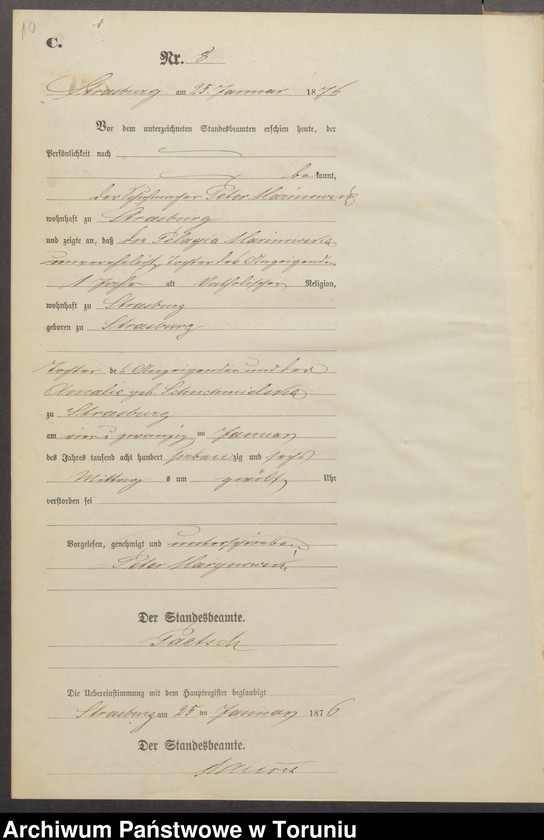 10
C.
Nr. 8
Strasburg am 25. Januar 1876
Vor dem unterzeichneten Standesbeamten erschien heute, der
Persönlichkeit nach
bekannt,
der Peter
wohnhaft zu Strasburg
und zeigte an, daß die Pelagia
unverehelicht, Tochter des Anzeigenden
1 Jahr alt katholischer Religion,
wohnhaft zu Strasburg
geboren zu Strasburg
Tochter des Anzeigenden und der
Amalie geb.
zu Strasburg
am vier u zwanzig ten Januar
des Jahres tausend acht hundert siebenzig und sechs
Mittags um zwölf Uhr
verstorben sei
Vorgelesen, genehmigt und unterschrieben
Peter
Der Standesbeamte.
Paetsch
Die Uebereinstimmung mit dem Hauptregister beglaubigt
Strasburg am 25 ten Januar 1876
Der Standesbeamte.
Archiwum Państwowe w Toruniu